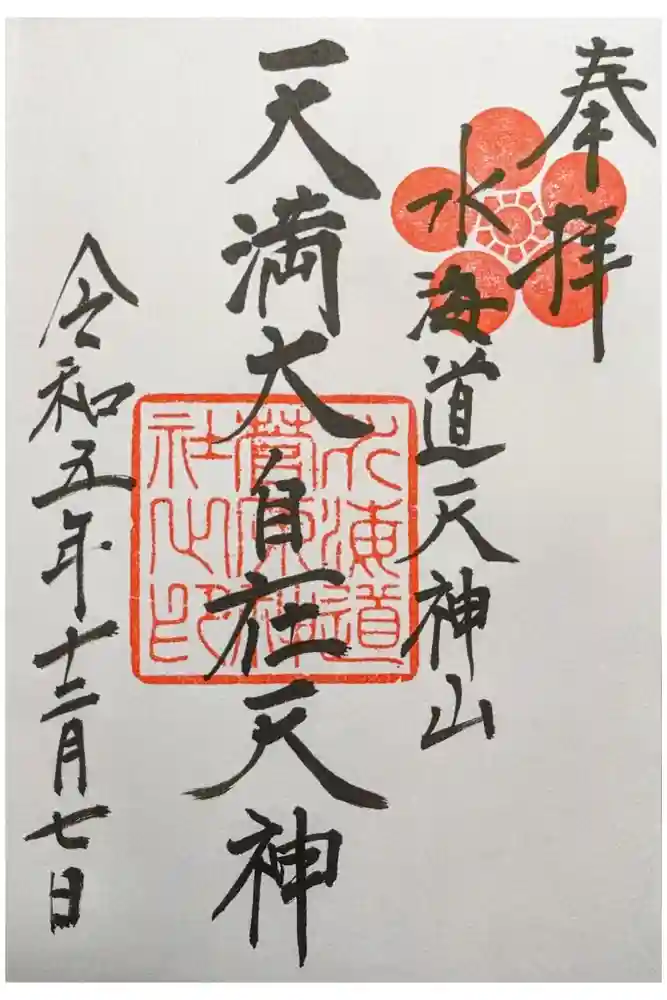 奉拝
水海道天神山
天満大自在天神
水海道
菅原神
社之印
令和五年十二月七日